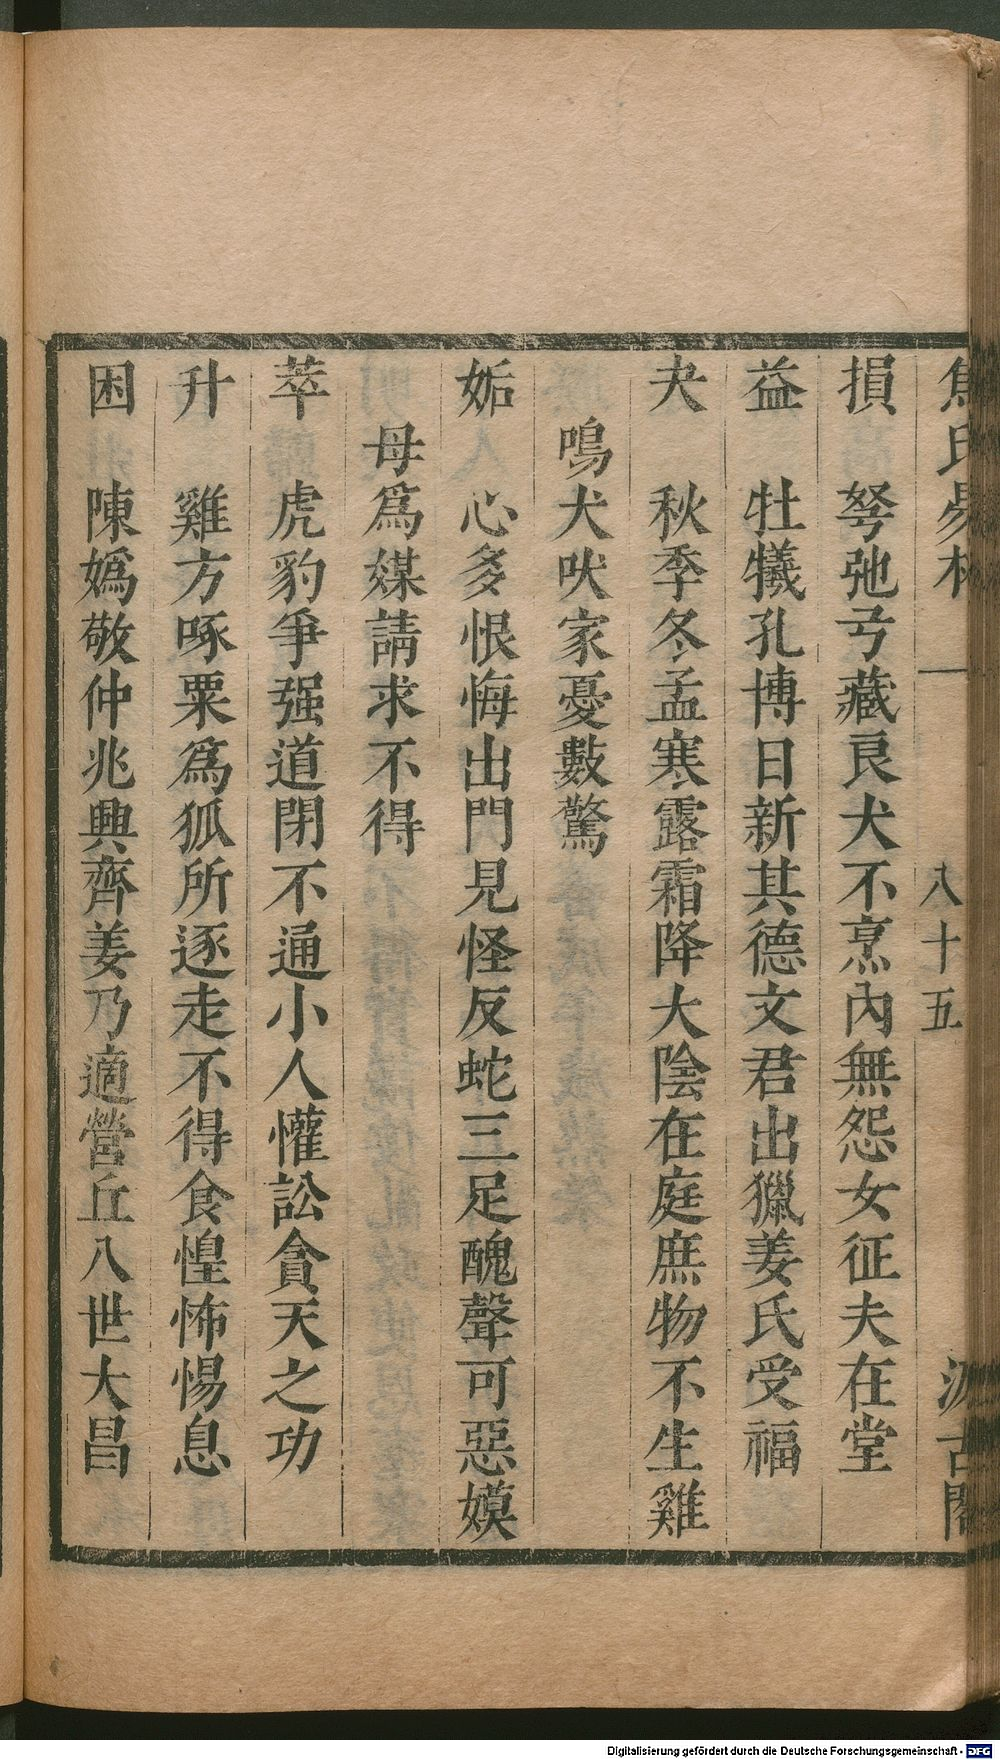 焦氏易林 一 八十五 汲古閣
損 弩弛弓藏良犬不烹內無怨女征夫在堂
益 牡犧孔博日新其德文君出獵姜氏受福
夬 秋季冬孟寒露霜降大陰在庭庶物不生雞
鳴犬吠家憂數驚
姤 心多恨悔出門見怪反蛇三足醜聲可惡嫫
母爲媒請求不得
萃 虎豹爭强道閉不通小人懽訟貪天之功
升 雞方啄粟爲狐所逐走不得食惶怖惕息
困 陳嬀敬仲兆興齊姜乃適營丘八世大昌
Digitalisierung gefördert durch die Deutsche Forschungsgemeinschaft - DFG